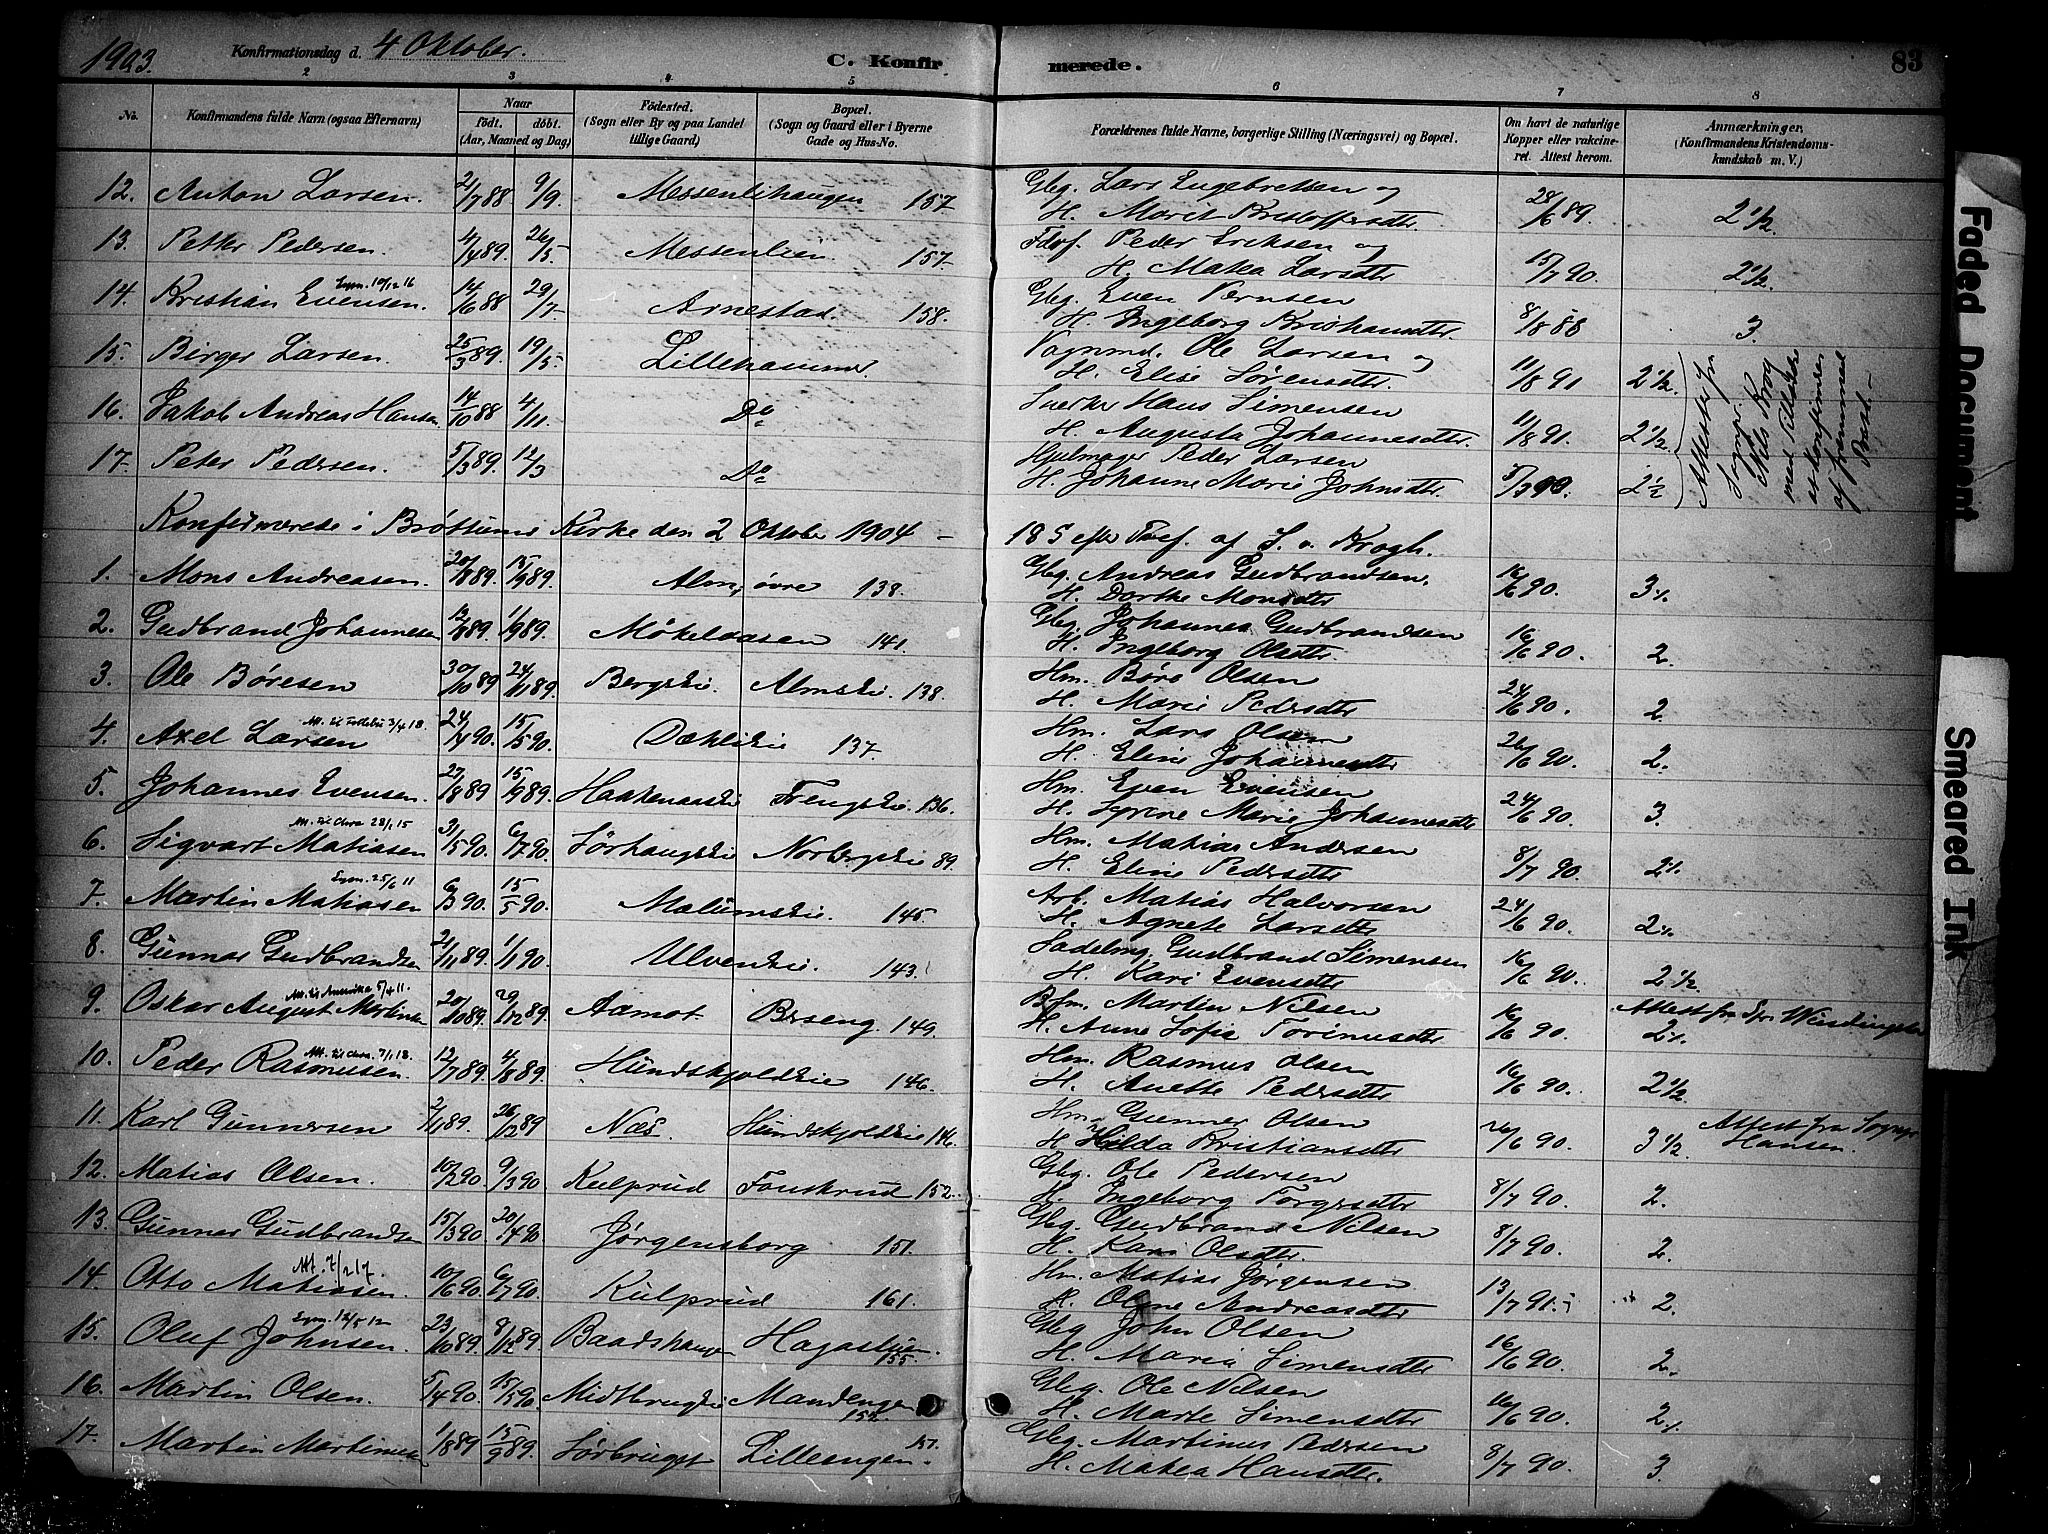 1903. Konfirmationsdag d. 4 Oktober. C. Konfirmerede. 83
2 3 4 5 6 7 8
No. Konfirmandens fulde Navn (ogsaa Efternavn) Naar født. døbt. (Aar, Maaned og Dag) Fødested. (Sogn eller By og paa Landet tillige Gaard) Bopæl. (Sogn og Gaard eller i Byerne Gade og Hus-No. Forældrenes fulde Navne, borgerlige Stilling (Næringsvei) og Bopæl. Om havt de naturlige Kopper eller vakcineret. Attest herom. Anmærkninger. (Konfirmandens Kristendomskundskab m. V.)
12. Anton Larsen. 21/7 88 9/9 Messenlihaugen 157. Gbg. Lars Engebretsen og
H. Marit Kristoffersdtr. 28/6 89. 2 1/2.
13. Petter Pedersen. 4/4 89. 26/5- Messenlien 157. Peder Eriksen og
H. Mathea Larsdtr 15/7 90. 2 1/2.
14. Kristian Evensen. 14/6 88 29/7- Arnestad 158. Gbg. Even
H. Ingeborg Kristiansdtr. 8/8 88 3.
15. Birger Larsen. 25/3 89. 19/5- Lillehammer. Vognmd. Ole Larsen og
H. Elise Sørensdtr. 11/8 91 2 1/2.
16. Jakob Andreas Hansen 14/10 88 4/11 Do Hans Simensen
H. Augusta Johannesdtr. 11/8 91. 2 1/2
17. Peter Pedersen. 5/3 89. 12/3 Do Hjulmager Peder Larsen
H. Johanne Marie Johnsdtr. 2 1/2
Attester fra Sogn.
Konfirmerede i Brøttum Kirke den 2 Oktober 1904 - 18 S efter Tref. af S. v. Krogh.
1. Mons Andreasen. 20/8 89. 15/9 89. Alm, øvre 138. Gbg. Andreas Gudbrandsen.
H. Dorthe Monsdtr 16/6 90.
2. Gudbrand Johannesen 12/8 89. 1/9 89. 141. Gbg. Johannes Gudbrandsen
H. Ingeborg Olsdtr. 16/6 90. 2.
3. Ole Børesen 30/10 89. 24/11 89. Bergseie Almseie 138. Hm. Børe Olsen
H. Marie Pedersdtr 24/6 90. 2.
4. Axel Larsen 24/4 90. 15/5 90. Dæhliseie 137. Hm. Lars Olsen
H. Eline Johannesdtr 26/6 90. 2.
5. Johannes Evensen. 27/8 89 15/9 89. 136. Hm. Even Evensen
H. Syrene Marie Johannesdtr 24/6 90. 3.
6. Sigvart Matiasen 31/5 90. 6/7 90. Sørhaugseie Norbergseie 89. Hm. Matias Andersen
H. Eline Pedersdtr 8/7 90.
Att. til Chra 28/1 15
7. Martin Matiasen 6/3 90. 15/5 90. Malumseie. 145. Arb. Matias Halvorsen
H. Agnete Larsdtr 24/6 90.
8. Gunnar Gudbrandsen 2/11 89. 1/1 90. Ulvenseie. 143. Sadelmg. Gudbrand Simensen
H. Kari Evensdtr. 16/6 90. 2 1/2.
9. Oskar August Martinsen 20/10 89. 29/12 89. Aamot Berseng 149. Bfm. Martin Nilsen
H. Anne Sofie Torinusdtr 16/6 90. Attest fra Spr.
Att. til Amerika 5/4 11.
10. Peder Rasmussen. 12/7 89. 4/8 89. Hundskjoldseie 146. Hm. Rasmus Olsen
H. Anette Pedersdtr. 16/6 90. 2 1/2.
11. Karl Gunnersen 89. 26/12 89 Næs. Hundskjoldseie 146. Hm. Gunner Olsen
H. Hilda Kristiansdtr 26/6 90. 3 1/2. Attest fra Sognepr. Hansen.
12. Matias Olsen. 10/2 90. 9/3 90. Kulprud Fonskrud 152. Gbg. Ole Pedersen
H. Ingeborg Torgersdtr. 8/7 90. 2.
13. Gunnar Gudbrandsen 15/3 90. 20/4 90. Jørgensborg 151. Gbg. Gudbrand Nilsen
H. Kari Olsdtr. 8/7 90. 2.
14. Otto Matiasen. 10/6 90. 6/7 90. Kulprud 161. Hm. Matias Jørgensen
H. Oline Andreasdtr 13/7 91. 2.
15. Oluf Johnsen. 23/10 89. 8/12 89. Baadshaugen 155. Gbg. John Olsen
H. Maria Simensdtr 16/6 90. 2.
16. Martin Olsen. 5/4 90. 15/5 90. Midtbrugseie Mandengen Gbg. Ole Nilsen
H. Marte Simensdtr 16/6 90.
17. Martin Martinusen 1/8 89 15/9 89. Sørbruget Lilleengen. 151. Gbg. Martinus Pedersen
H. Mathea Hansdtr. 8/7 90. 3.
Faded Document
Smeared Ink